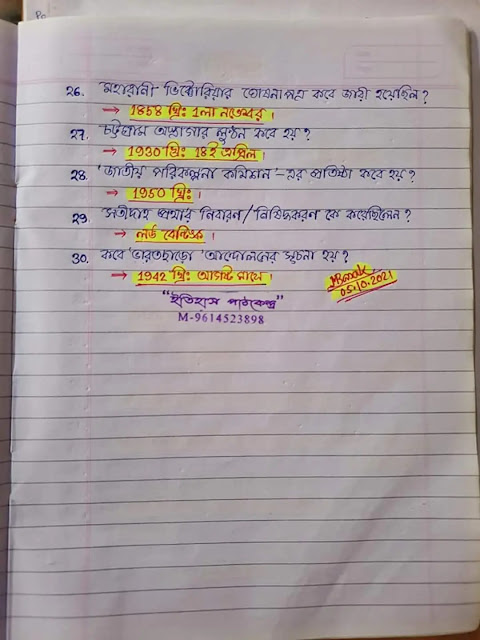 26. মহারানী ভিক্টোরিয়ার ঘোষনাপত্র কবে জারী হয়েছিল?
→ 1858 খ্রিঃ 1লা নভেম্বর।
27. চট্টগ্রাম অস্ত্রাগার লুণ্ঠন কবে হয়?
→ 1930 খ্রিঃ 18ই এপ্রিল।
28. 'জাতীয় পরিকল্পনা কমিশন'-এর প্রতিষ্ঠা কবে হয়?
→ 1950 খ্রিঃ।
29. সতীদাহ প্রথার নিবারণ/নিষিদ্ধকরণ কে করেছিলেন?
→ লর্ড বেন্টিঙ্ক।
30. কবে 'ভারতছাড়ো' আন্দোলনের সূচনা হয়?
→ 1942 খ্রিঃ আগস্ট মাসে।
"ইতিহাস পাঠকেন্দ্র"
M-9614523898
05.10.2021